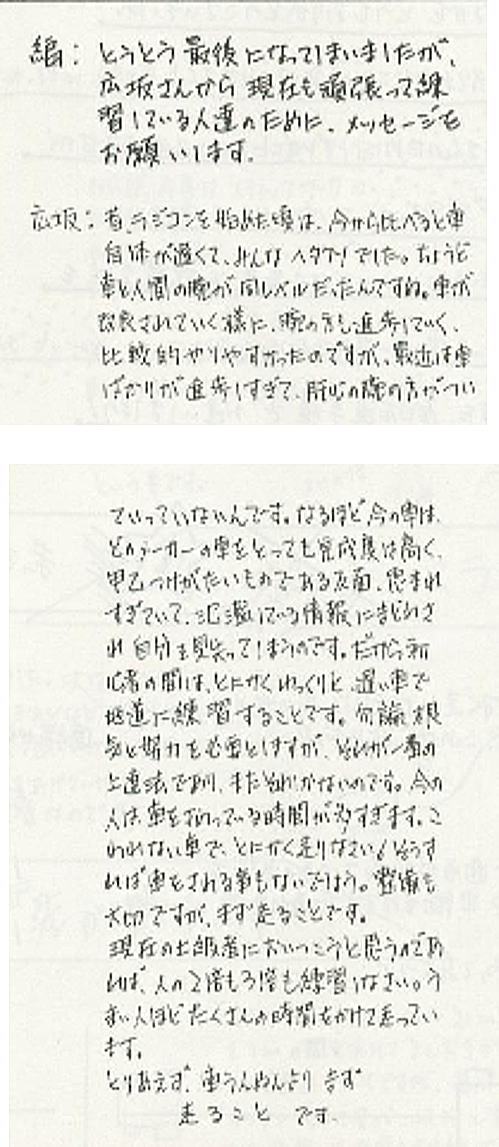 編：とうとう最後になってしまいましたが、
広坂さんから現在も頑張って練
習している人達のために、メッセージを
お願いします。
広坂：昔、ラジコンを始めた頃は、今から比べると車
自体が遅くて、みんなヘタクソでした。ちょうど
車と人間の腕が同レベルだったんですね。車が
改良されていく様に、腕の方も進歩していく、
比較的やりやすかったのですが、最近は車
ばかりが進歩しすぎて、肝心の腕の方がつい
ていっていないんです。なるほど今の車は、
どのメーカーの車をとっても完成度は高く、
甲乙つけがたいものである反面、恵まれ
すぎていて、氾濫している情報にまどわさ
れ自分を見失ってしまうのです。だから初
心者の間は、とにかくゆっくりと、遅い車で
地道に練習することです。勿論、根
気と努力を必要としますが、それが一番の
上達法であり、またそれしかないのです。今の
人は車をいじっている時間が多すぎます。こ
われない車で、とにかく走りなさい！そうす
れば車をこわす事もないでしょう。整備も
大切ですが、まず走ることです。
現在の上級者においつこうと思うのであ
れば、人の2倍も3倍も練習しなさい。う
まい人ほどたくさんの時間をかけて走ってい
ます。
とりあえず、車うんぬんより まず
走ること です。